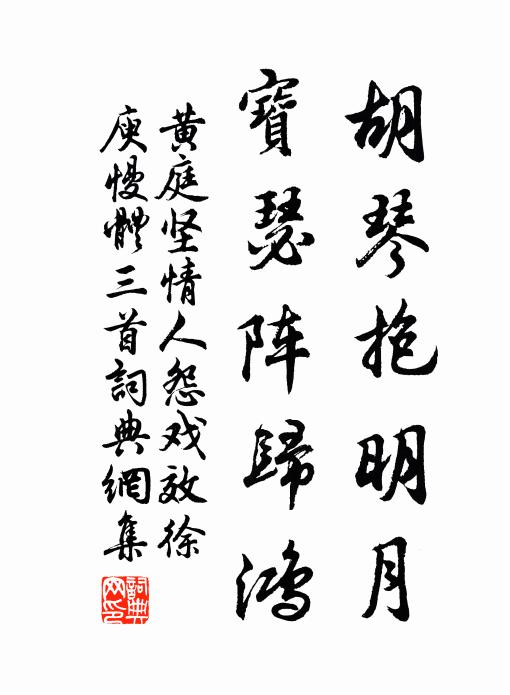 胡琴抱明月
寶瑟阵歸鴻
黄庭坚情人怨戏效徐
庾慢體三首詞典網集
詞典网印